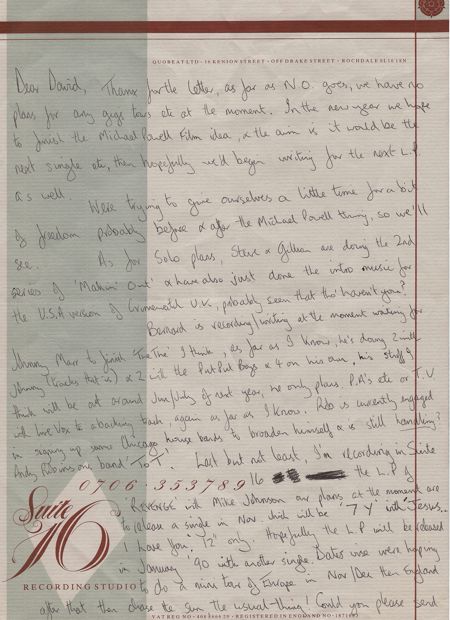 QUOBEAT LTD · 16 KENION STREET · OFF DRAKE STREET · ROCHDALE SL16 1SN
Dear David, Thanx for the letter, as far as N.O. goes, we have no
plans for any gigs tours etc at the moment. In the new year we hope
to finish the Michael Powell Film idea, & the aim is it would be the
next single etc, then hopefully we'd begin writing for the next L.P
as well
Were trying to give ourselves a little time for a bit
of freedom probably before & after the Michael Powell thing, so we'll
see. As for Solo plans, Steve & Gillian are doing the 2nd
series of 'Makin' Out' & have also just done the intro music for
the U.S.A version of Crimewatch U.K, probably seen that tho' haven't you?
Bernard is recording/writing at the moment waiting for
Johnny Marr to finish 'The The' I think, as far as I know, he's doing 2 with
Johnny (tracks that is) & 2 with the Pet Pet Boys & 4 on his own, his stuff I
think will be out around Jun/July of next year, no only plans. P.A's etc or T.V
with live Vox to a backing track, again as far as I know. Rob is currently engaged
in signing up some Chicago house bands to broaden himself & is still handling?
Andy Robinsons band 'ToT'! Last but not least, I'm recording in Suite
16 the L.P of
'REVENGE' with Mike Johnson our plans at the moment are
to release a single in Nov which will be '7 Y' with 'Jesus..
I have you.' 12" only. Hopefully the L.P will be released
in January '90 with another single. Dates wise were hoping
to do a mini tour of Europe in Nov/Dec then England
after that then chase the sun the usual thing! Could you please send
0706·353789
Suite
16
RECORDING STUDIO
VAT REG NO · REGISTERED IN ENGLAND NO ·